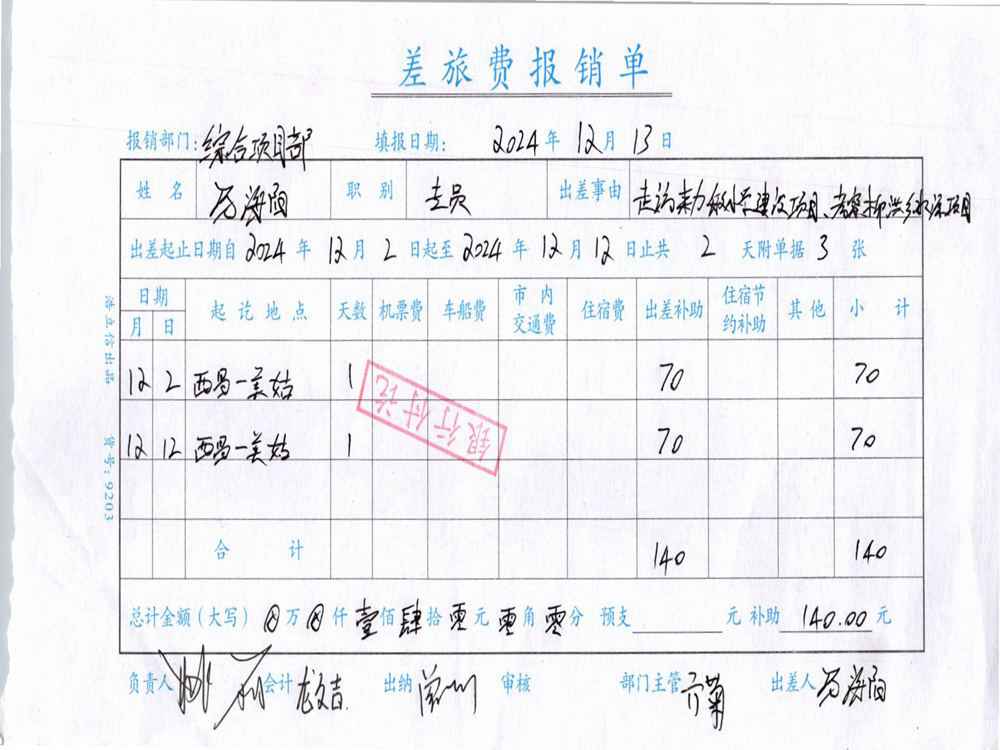 差旅费报销单
报销部门：综合项目部 填报日期： 2024 年 12 月 13 日
姓名 海阳 职别 出差事由 建设项目、考察
出差起止日期自 2024 年 12 月 2 日起至 2024 年 12 月 12 日止共 2 天附单据 3 张
日期 起讫地点 天数 机票费 车船费 市内交通费 住宿费 出差补助 住宿节约补助 其他 小计
月 日
12 2 西昌—美姑 1 70 70
12 12 西昌—美姑 1 70 70
合计 140 140
总计金额（大写） ⊗ 万 ⊗ 仟 壹 佰 肆 拾 零 元 零 角 零 分 预支 元 补助 140.00 元
负责人 会计 出纳 审核 部门主管 出差人 海阳
银行付讫
货号：9203